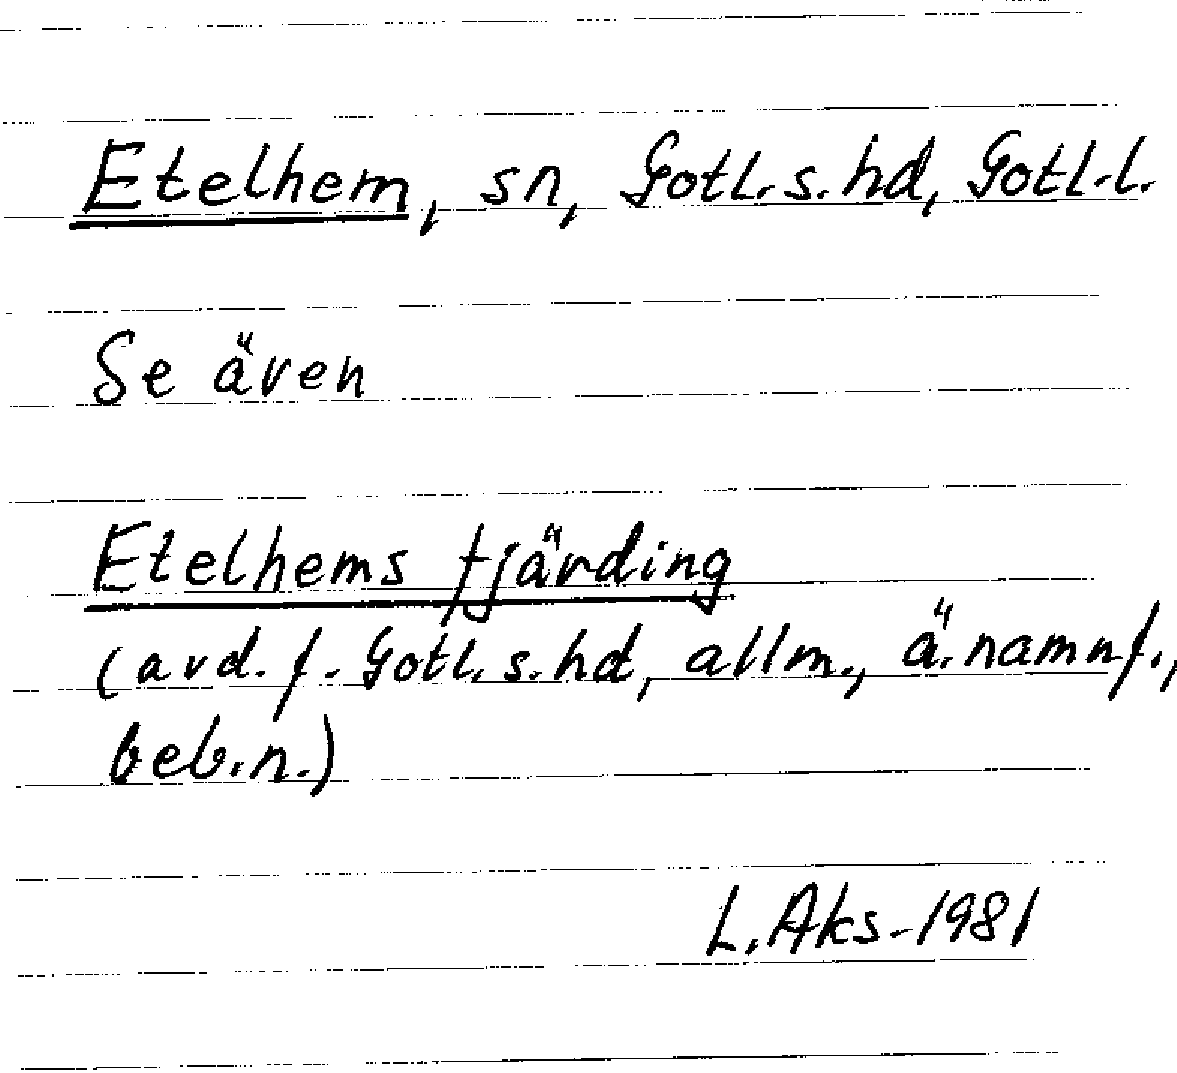 Etelhem, sn, Gotl. s. hd, Gotl. l.
Se även
Etelhems fjärding
(avd. f. Gotl. s. hd, allm., ä. namnf.,
beb. n.)
L. Aks- 1981